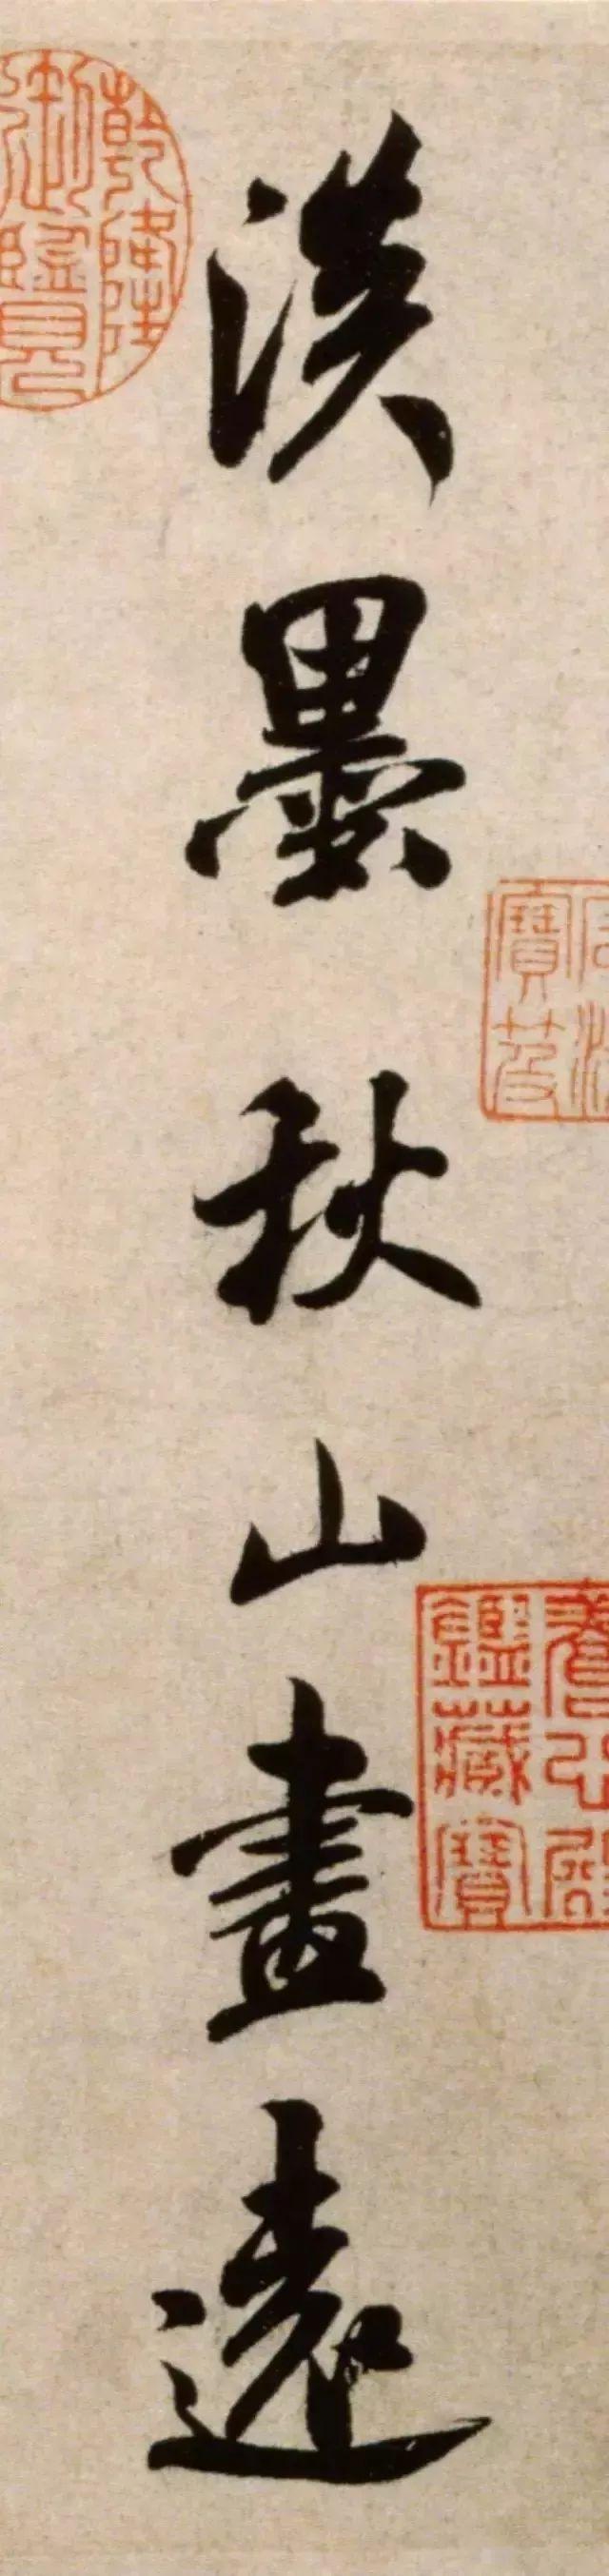 石渠
寶笈
養心殿
鑑藏寶
淡墨秋山畫遠
乾隆
御覽